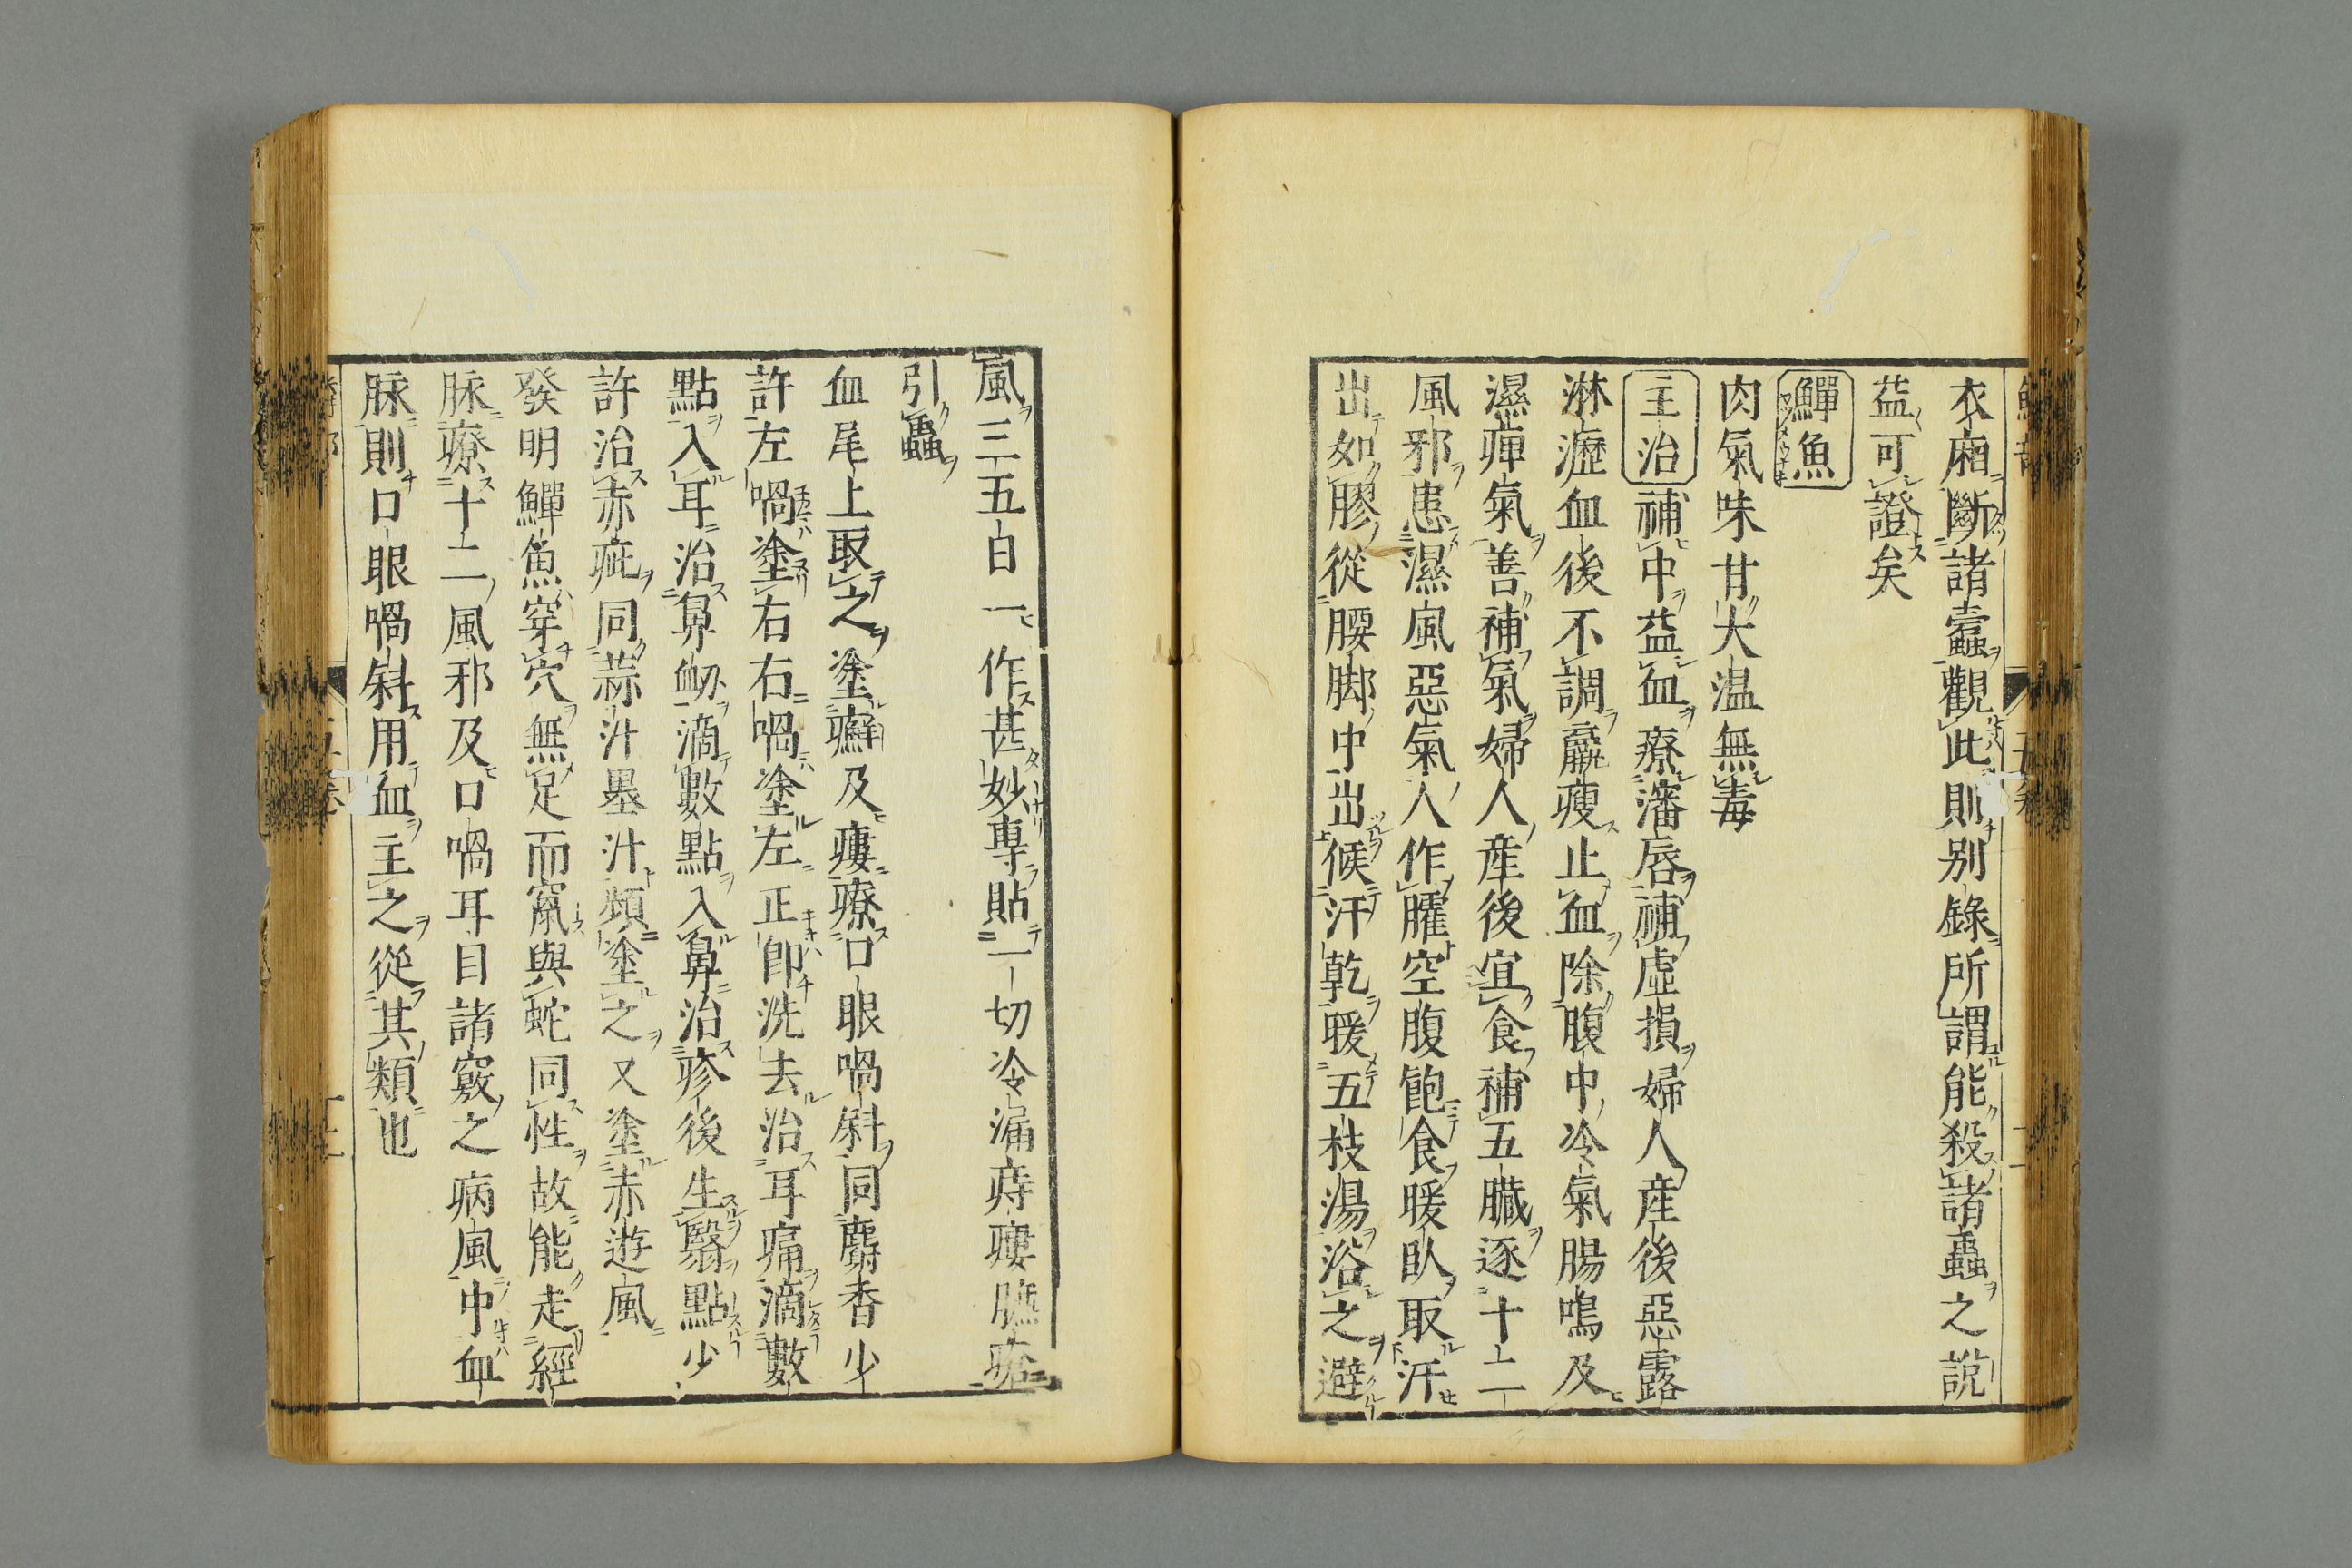 衣廂斷諸蠹觀此則别錄所謂能殺諸蟲之説
益可證矣
鱓魚
肉氣味甘大温無毒
主治補中益血療瀋唇補虛損婦人産後惡露
淋瀝血後不調羸瘦止血除腹中冷氣腸鳴及
濕痺氣善補氣婦人産後宜食補五臟逐十二
風邪患濕風惡氣人作臛空腹飽食暖臥取汗
出如膠從腰脚中出候汗乾暖五枝湯浴之避
風三五日一作甚妙專貼一切冷漏痔瘻臁瘡
引蟲
血尾上取之塗癬及瘻療口眼喎斜同麝香少
許左喎塗右右喎塗左正卽洗去治耳痛滴數
點入耳治鼻衄滴數點入鼻治疹後生翳點少
許治赤疵同蒜汁墨汁頻塗之又塗赤遊風
發明鱓魚穿穴無足而竄與蛇同性故能走經
脉療十二風邪及口喎耳目諸竅之病風中血
脉則口眼喎斜用血主之從其類也